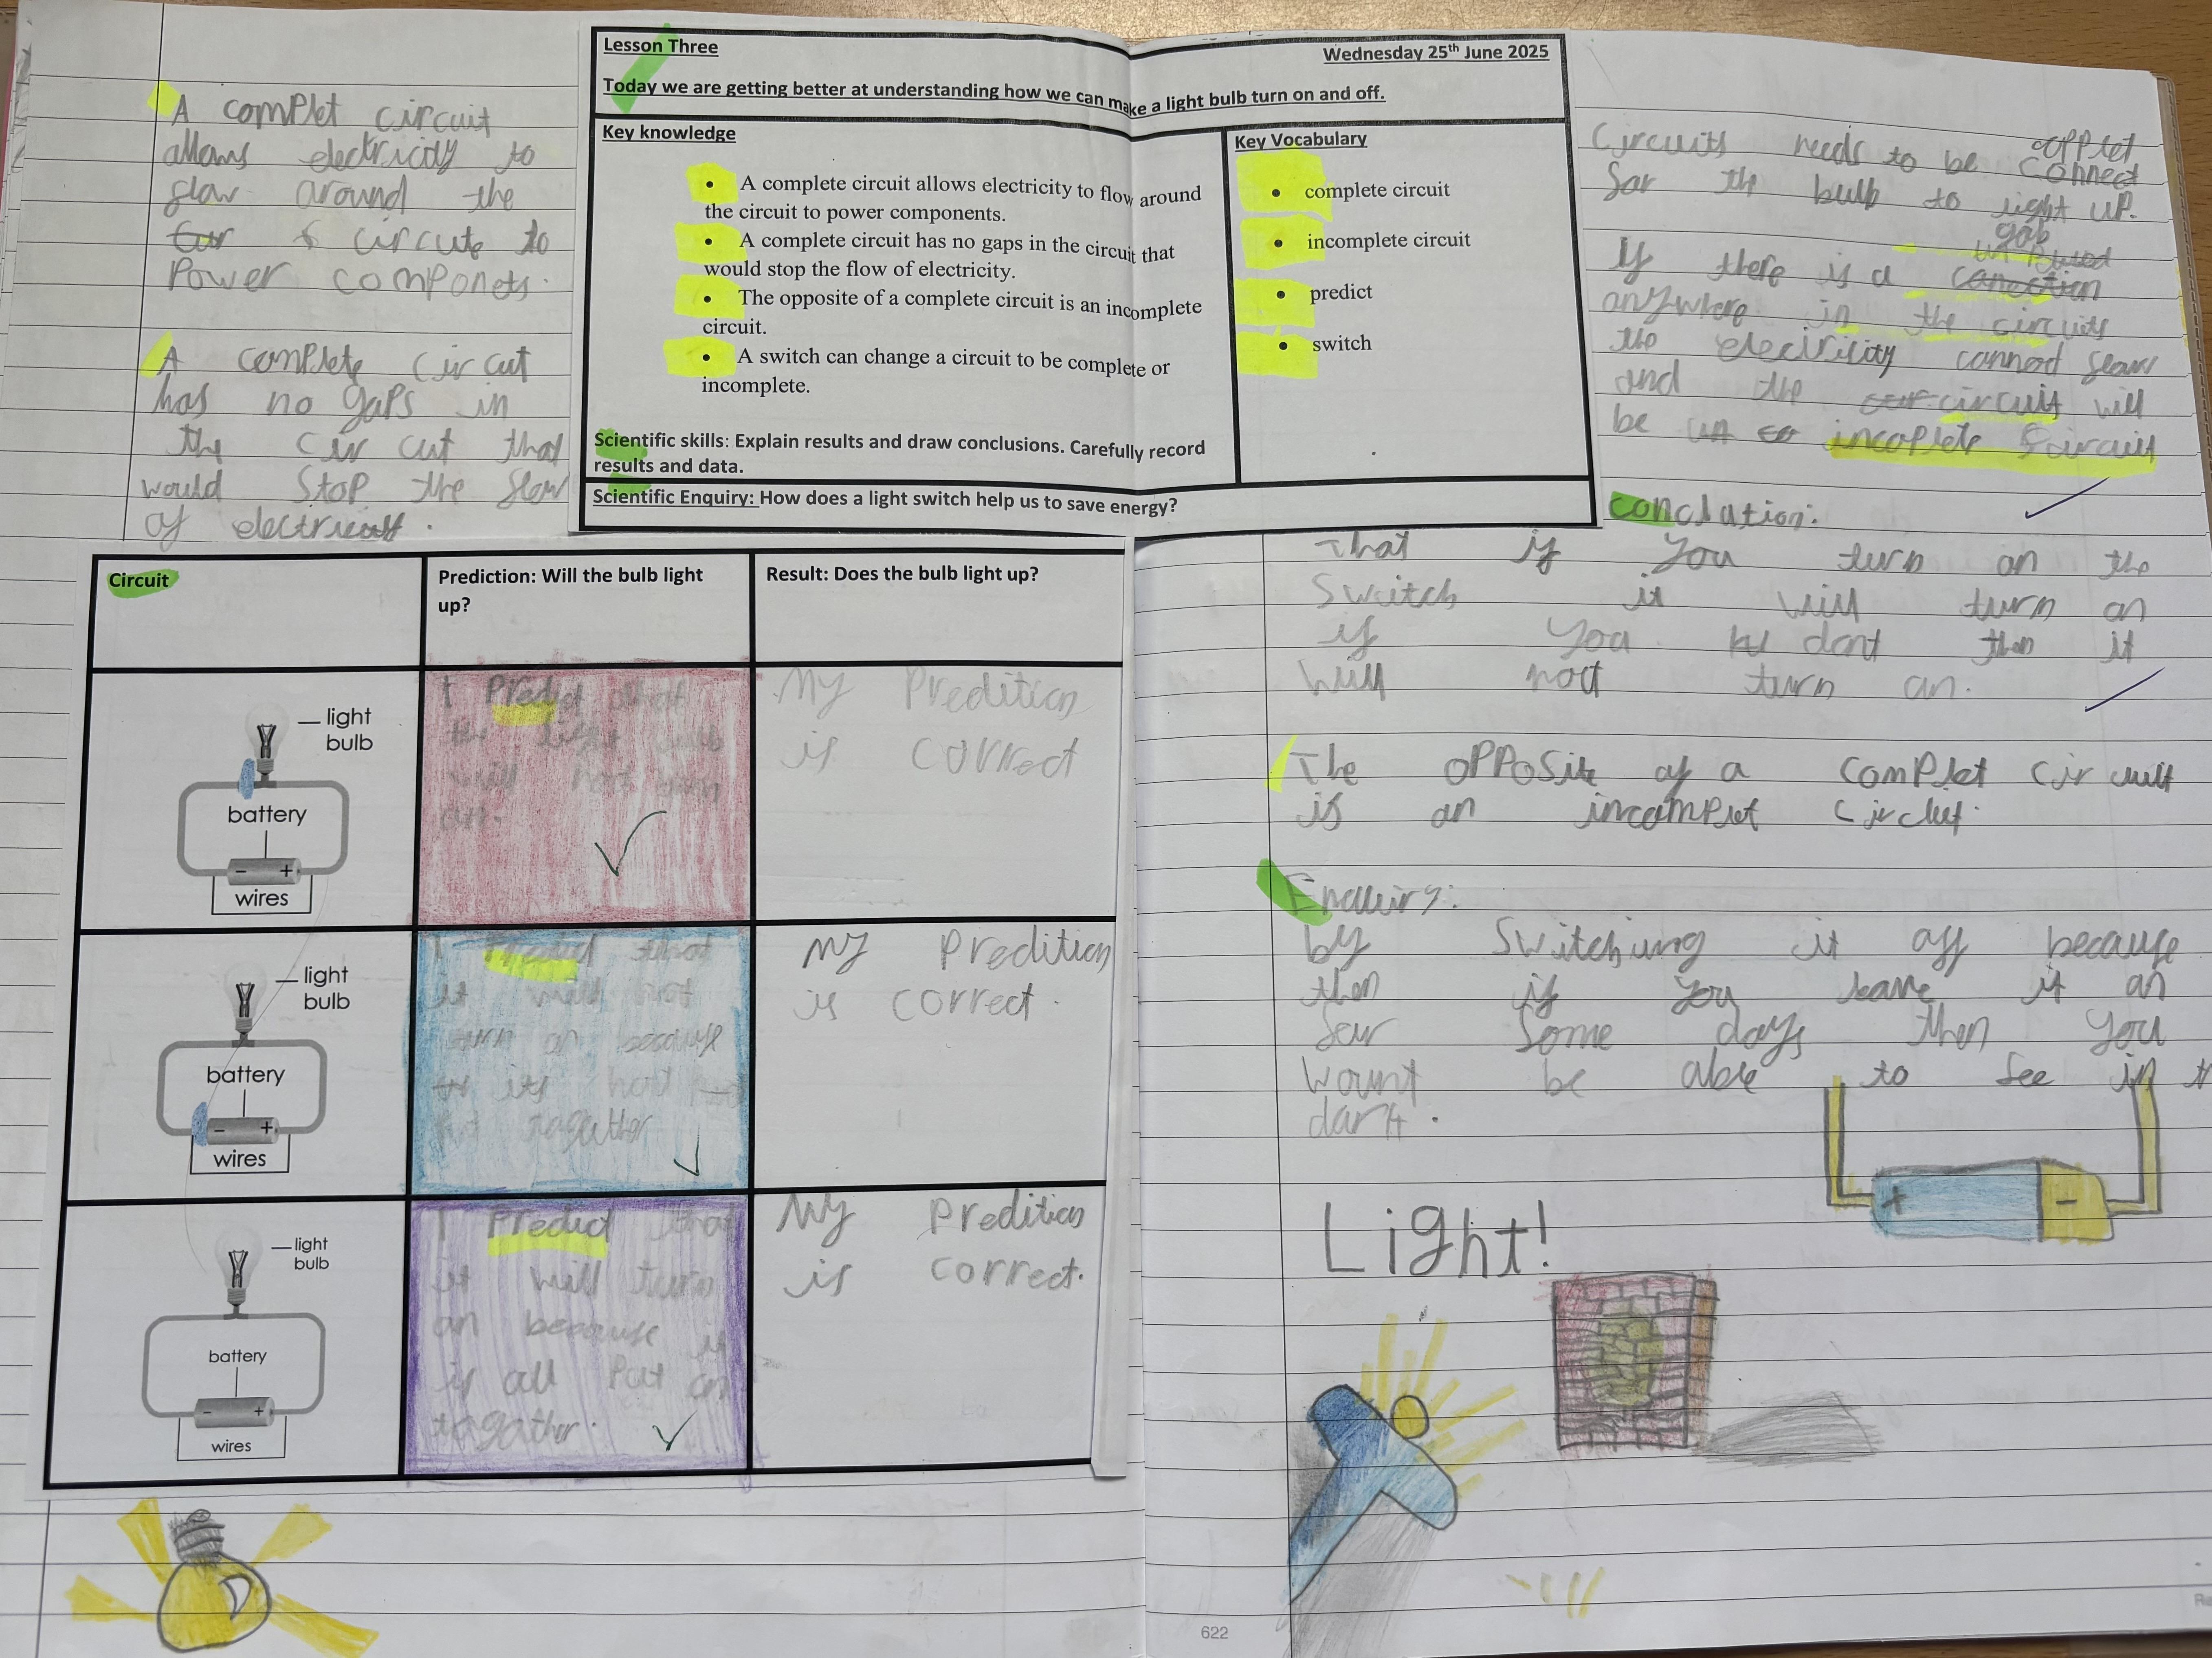 A complet circuit
allows electricidy to
flow around the
circute to
Power componets.
A complete circut
has no gaps in
the circut that
would stop the flow
of
Lesson Three
Wednesday 25th June 2025
Today we are getting better at understanding how we can make a light bulb turn on and off.
Key knowledge
• A complete circuit allows electricity to flow around
the circuit to power components.
• A complete circuit has no gaps in the circuit that
would stop the flow of electricity.
• The opposite of a complete circuit is an incomplete
circuit.
• A switch can change a circuit to be complete or
incomplete.
Scientific skills: Explain results and draw conclusions. Carefully record
results and data.
Key Vocabulary
• complete circuit
• incomplete circuit
• predict
• switch
Scientific Enquiry: How does a light switch help us to save energy?
Circuits needs to be connect
for the bulb to light up.
gap
If there is a
anywhere in the circuits
the electricity cannod flow
and the circuit will
be incoplete circuit
conclation:
That if you turn on the
Switch it will turn on
if you dont then it
will not turn on.
The opposite of a complet circuit
is an incomplet
Enquiry:
by Switching it off because
then if you leave it on
for some days then you
wount be able to see in
dark.
Light!
Circuit
Prediction: Will the bulb light
up?
Result: Does the bulb light up?
light
bulb
battery
- +
wires
I Predict that
the light bulb
will not turn
on.
My Predition
is correct
light
bulb
battery
- +
wires
I that
it will not
turn on because
its not
togather
My Predition
is correct.
light
bulb
battery
- +
wires
I Predict that
it will turn
on because it
is all Put on
togather.
My Predition
is correct.
+ -
622